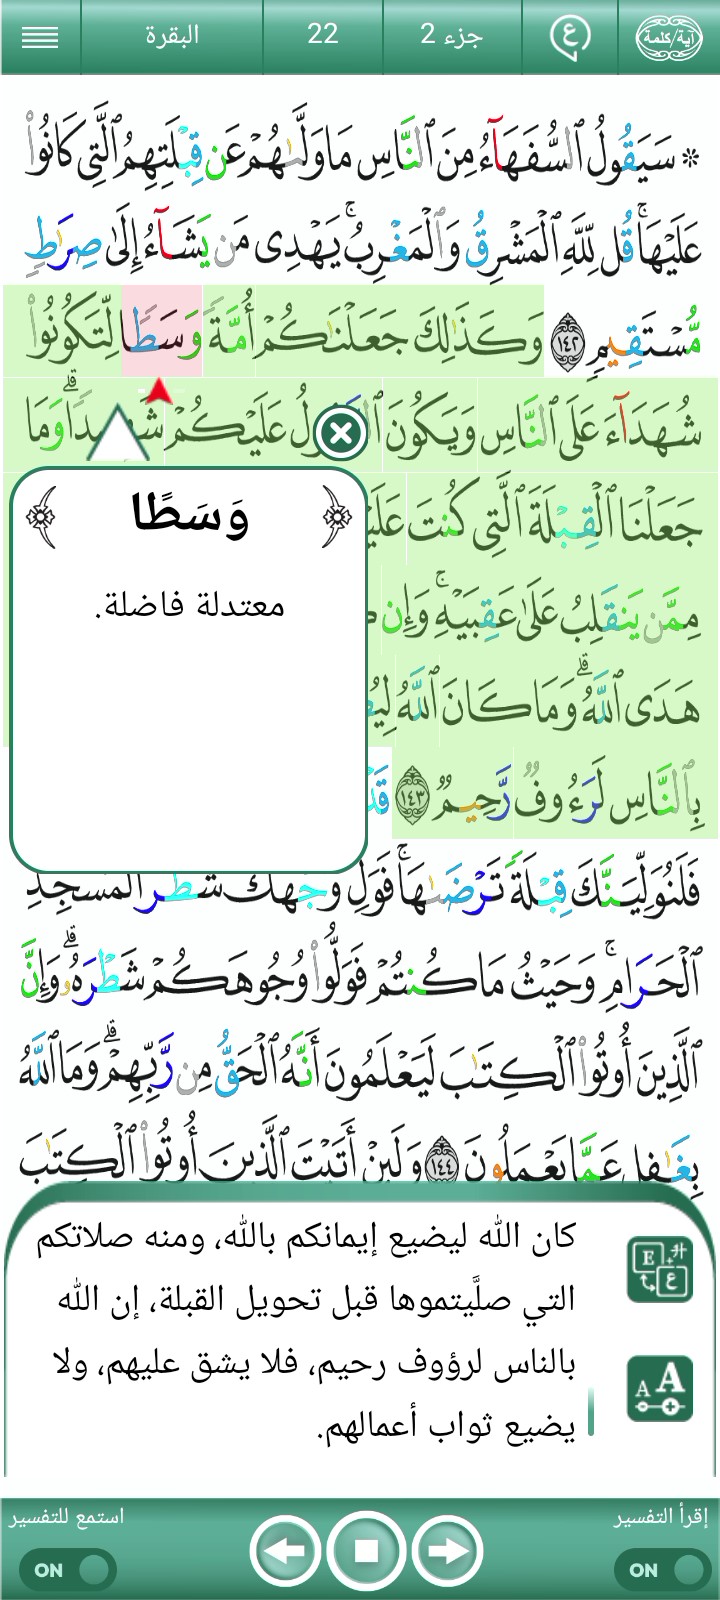 آية/كلمة
ع
جزء 2
22
البقرة
۞ سَيَقُولُ ٱلسُّفَهَآءُ مِنَ ٱلنَّاسِ مَا وَلَّىٰهُمْ عَن قِبْلَتِهِمُ ٱلَّتِى كَانُوا۟
عَلَيْهَا ۚ قُل لِّلَّهِ ٱلْمَشْرِقُ وَٱلْمَغْرِبُ ۚ يَهْدِى مَن يَشَآءُ إِلَىٰ صِرَٰطٍ
مُّسْتَقِيمٍ ١٤٢ وَكَذَٰلِكَ جَعَلْنَٰكُمْ أُمَّةً وَسَطًا لِّتَكُونُوا۟
شُهَدَآءَ عَلَى ٱلنَّاسِ وَيَكُونَ عَلَيْكُمْ شَهِيدًا ۗ وَمَا
جَعَلْنَا ٱلْقِبْلَةَ ٱلَّتِى كُنتَ
مِمَّن يَنقَلِبُ عَلَىٰ عَقِبَيْهِ ۚ وَإِن
هَدَى ٱللَّهُ ۗ وَمَا كَانَ ٱللَّهُ
بِٱلنَّاسِ لَرَءُوفٌ رَّحِيمٌ ١٤٣
وَسَطًا
معتدلة فاضلة.
فَلَنُوَلِّيَنَّكَ قِبْلَةً تَرْضَىٰهَا ۚ فَوَلِّ وَجْهَكَ شَطْرَ ٱلْمَسْجِدِ
ٱلْحَرَامِ ۚ وَحَيْثُ مَا كُنتُمْ فَوَلُّوا۟ وُجُوهَكُمْ شَطْرَهُۥ ۗ وَإِنَّ
ٱلَّذِينَ أُوتُوا۟ ٱلْكِتَٰبَ لَيَعْلَمُونَ أَنَّهُ ٱلْحَقُّ مِن رَّبِّهِمْ ۗ وَمَا ٱللَّهُ
بِغَٰفِلٍ عَمَّا يَعْمَلُونَ ١٤٤ وَلَئِنْ أَتَيْتَ ٱلَّذِينَ أُوتُوا۟ ٱلْكِتَٰبَ
كان الله ليضيع إيمانكم بالله، ومنه صلاتكم
التي صلَّيتموها قبل تحويل القبلة، إن الله
بالناس لرؤوف رحيم، فلا يشق عليهم، ولا
يضيع ثواب أعمالهم.
E
ع
A A
إقرأ التفسير
استمع للتفسير
ON
ON